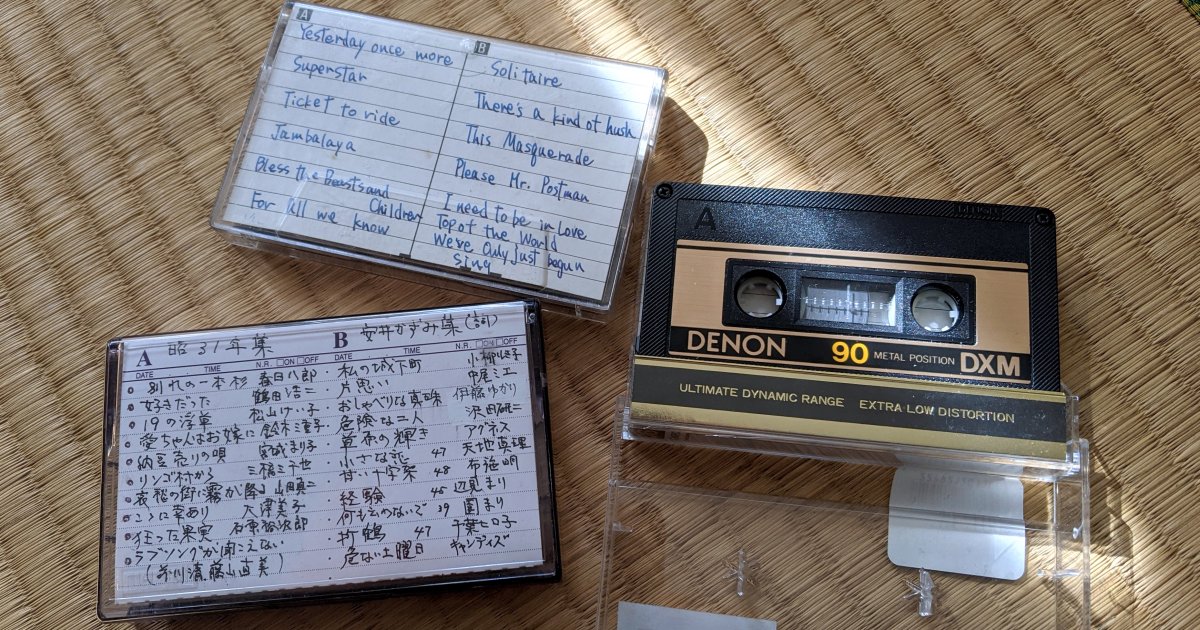 A
Yesterday once more
Superstar
Ticket to ride
Jambalaya
Bless the Beasts and
Children
For All we know
B
Solitaire
There's a kind of hush
This Masquerade
Please Mr. Postman
I need to be in Love
Top of the World
We've Only just begun
Sing
A 昭31年集
DATE TIME N.R. □ON □OFF
別れの一本杉 春日八郎
好きだった 鶴田浩二
19の浮草 松山けい子
愛ちゃんはお嫁に 鈴木三重子
納豆売りの唄 宮城まり子
リンゴ村から 三橋三千也
哀愁の街に霧が降る 山田真二
ここに幸あり 大津美子
狂った果実 石原裕次郎
ラブソングが聞こえない
(芥川清 藤山直美)
B 安井かずみ集(詞)
DATE TIME N.R. □ON □OFF
私の城下町 小柳ルミ子
片思い 中尾ミエ
おしゃべりな真珠 伊藤ゆかり
危険な二人 沢田研二
草原の輝き アグネス
小さな恋 47 天地真理
甘い十字架 48 布施明
経験 45 辺見まり
何もいわないで 39 園まり
折鶴 47 千葉ヒロ子
危ない土曜日 キャンディズ
DENON
A
DENON 90 METAL POSITION DXM
ULTIMATE DYNAMIC RANGE EXTRA LOW DISTORTION